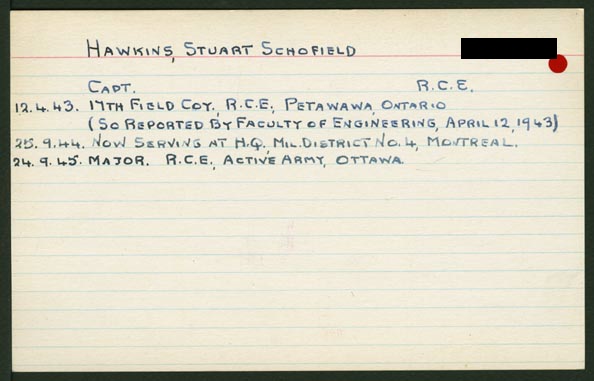 HAWKINS, STUART SCHOFIELD
CAPT. R.C.E.
12.4.43. 17TH FIELD COY., R.C.E., PETAWAWA, ONTARIO
(SO REPORTED BY FACULTY OF ENGINEERING, APRIL 12, 1943)
25.9.44. NOW SERVING AT H.Q., MIL. DISTRICT NO. 4, MONTREAL.
24.9.45. MAJOR. R.C.E., ACTIVE ARMY, OTTAWA.